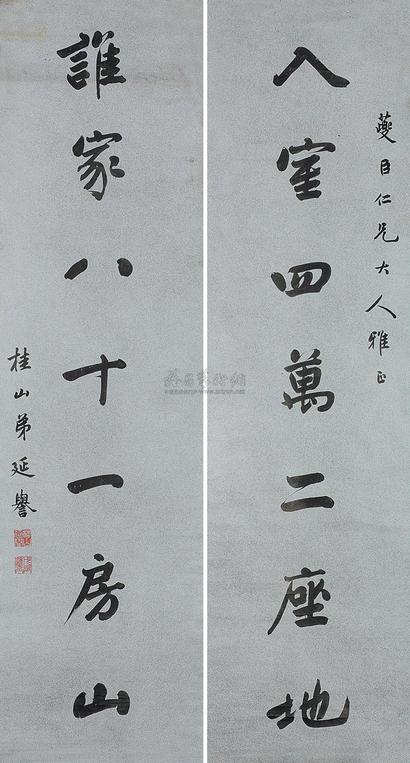 夔臣仁兄大人雅正
入室四萬二座地
誰家八十一房山
桂山弟延譽